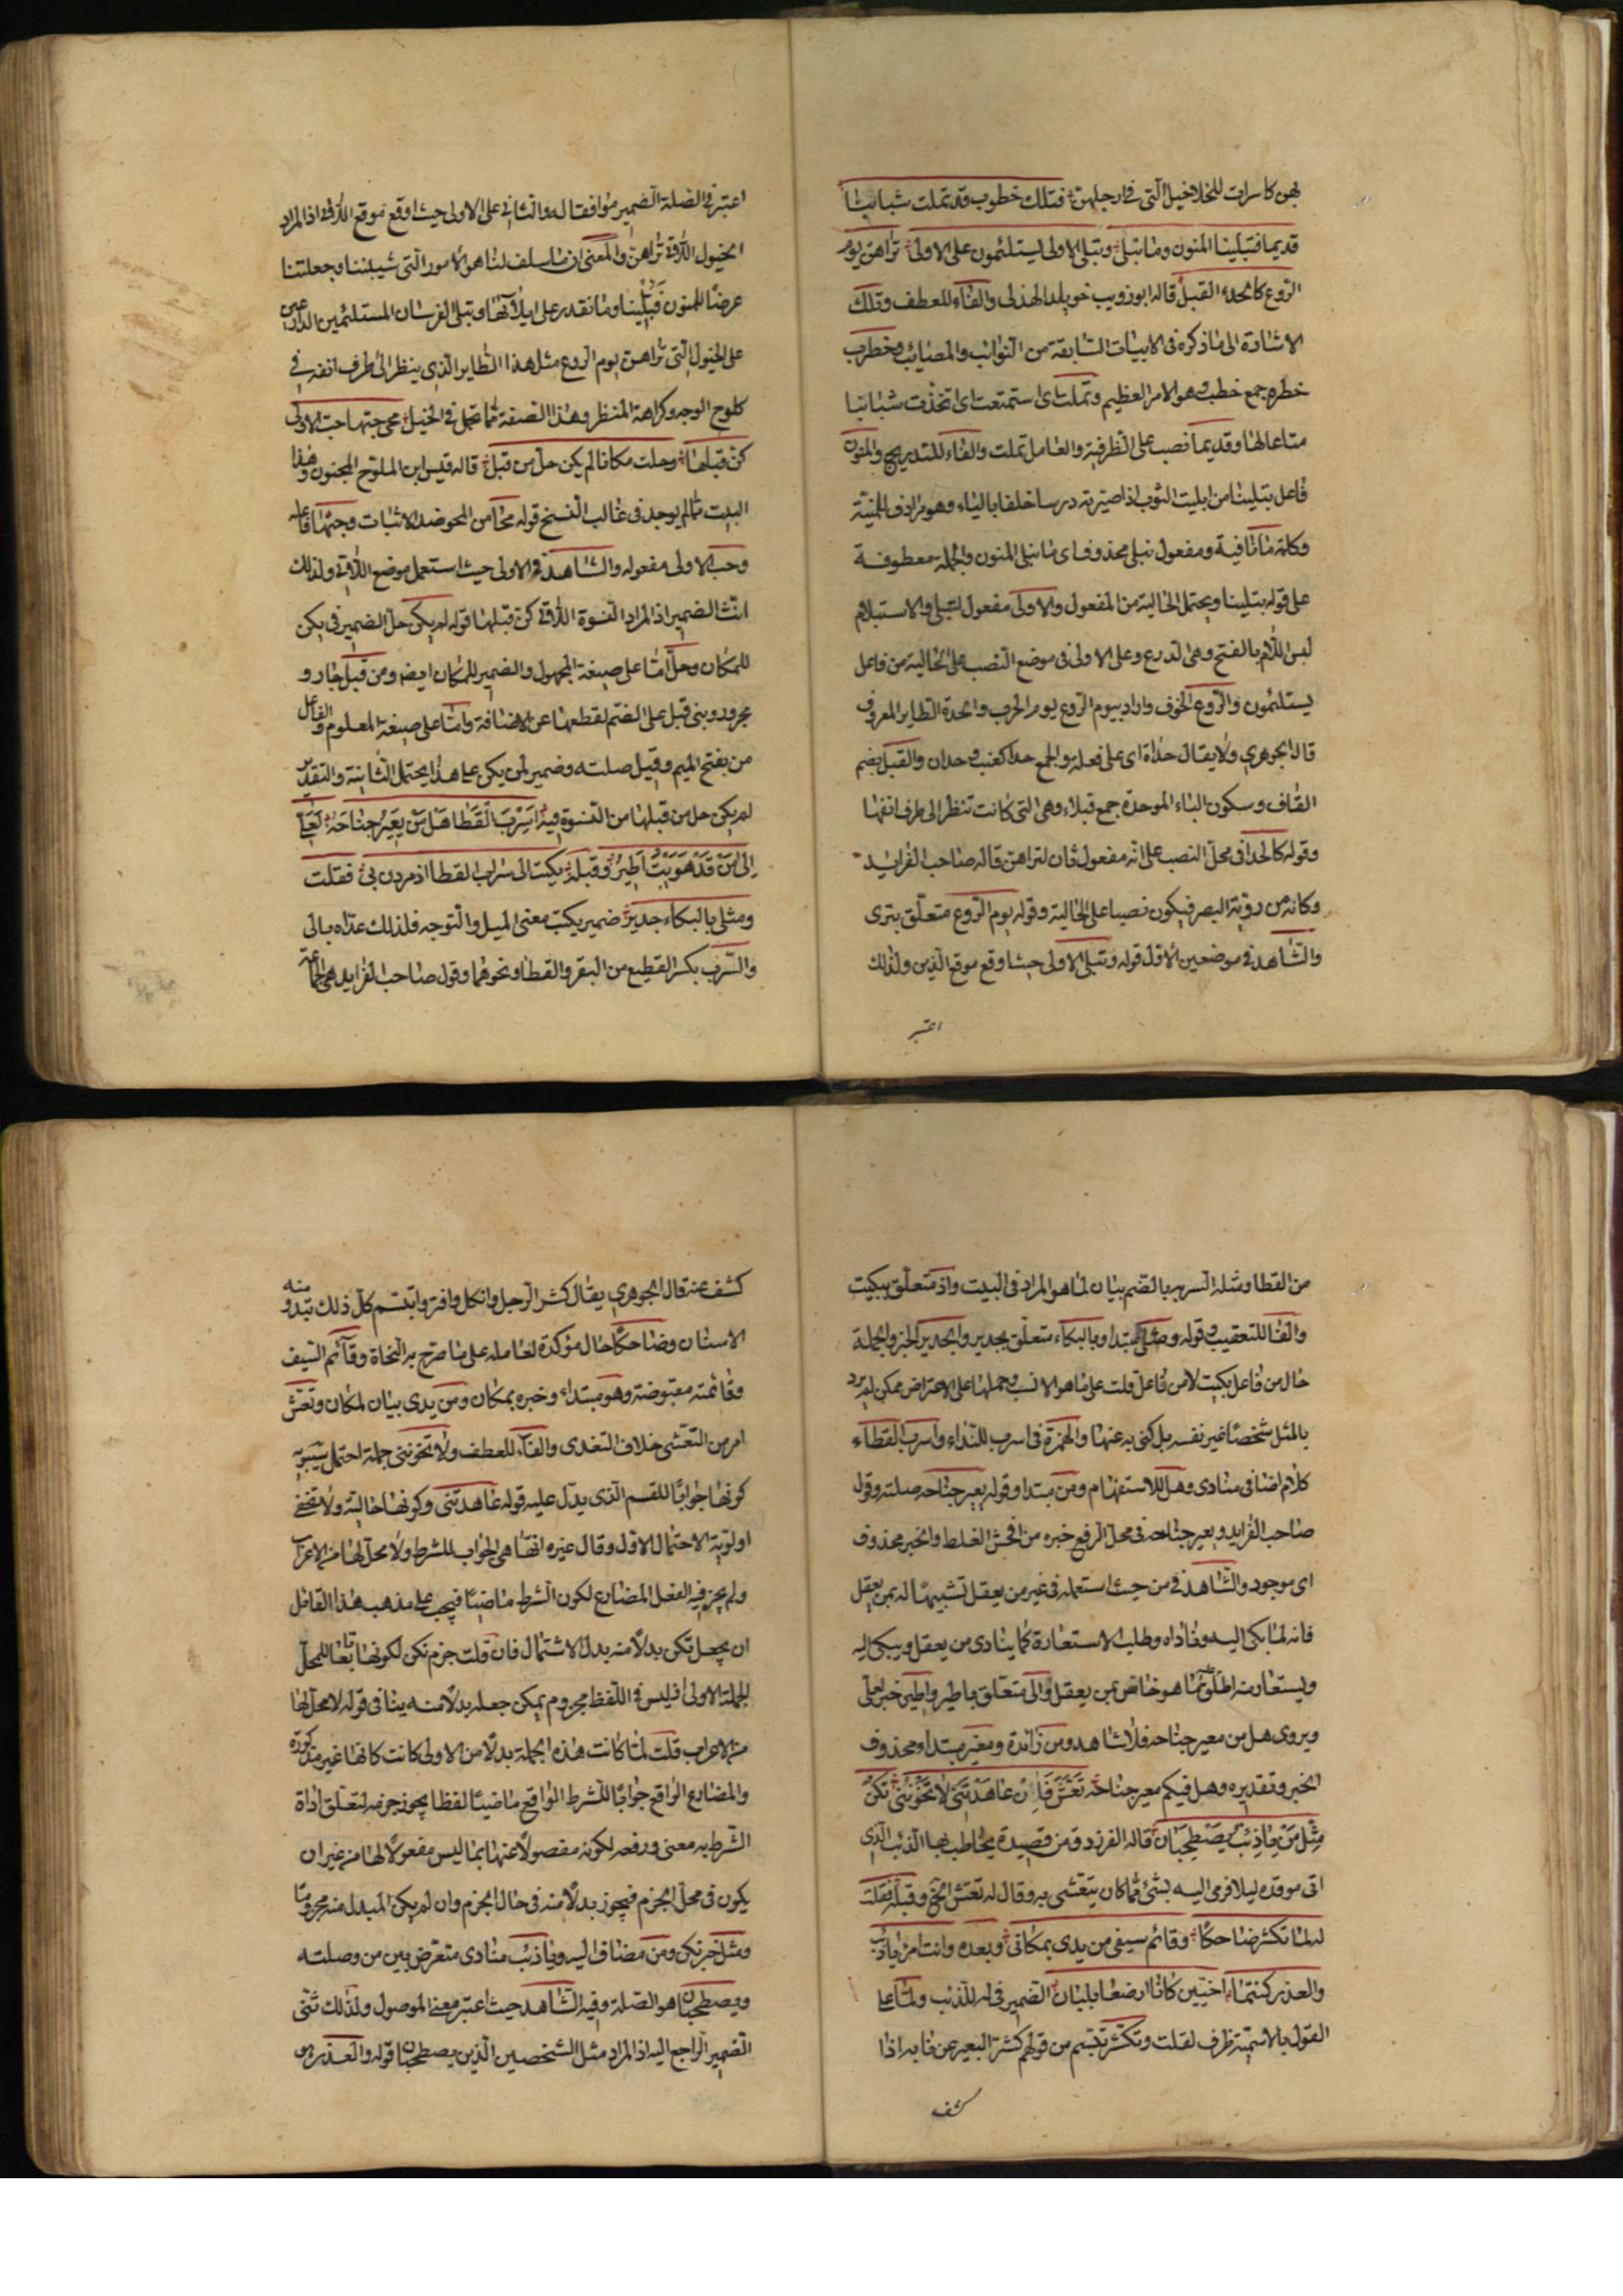 بهن كاسرات للخلاخيل الّتى فى ارجلهنّ فتلك خطوب قد تملت شبابنا
قديما فتبلينا المنون وما نبلى وتبلى الاولى يستلئمون على الاولى تراهن يوم
الرّوع كالحدء القبل قاله ابو ذويب خويلد الهذلى والفاء للعطف وتلك
الاشارة الى ما ذكره فى الابيات السّابقة من النّوائب والمصائب وخطوب
خطره جمع خطب وهو الامر العظيم وتملت اى استمتعت اى اتخذت شبابنا
متاعا لها وقديما نصب على الظرفية والعامل تملت والفاء للتدريج والمنون
فاعل بتلينا من ابليت الثوب اذا صيرته درسا خلقا بالياء وهو مرادف للمنيّة
وكلمة ما نافية ومفعول نبلى محذوف اى ما نبلى المنون والجملة معطوفة
على قوله بتلينا ويحتمل الحالية من المفعول والاولى مفعول لتبلى والاستيلام
لبس اللأم بالفتح وهى الدرع وعلى الاولى فى موضع النصب على الحالية من فاعل
يستلئمون والرّوع الخوف واراد بيوم الرّوع يوم الحرب والحدة الطاير المعروف
قال الجوهرى ولا يقال حداة اى على فعلة والجمع حدا كعنب وحدان والقبل بضم
القاف وسكون الباء الموحدة جمع قبلاء وهى التى كانت تنظر الى طرف انفها
وقوله كالحدا فى محلّ النصب على انّه مفعول ثان لتراهن قاله صاحب الفرايد
وكانه من روية البصر فيكون نصبا على الحالية وقوله يوم الرّوع متعلّق بترى
والشّاهد فى موضعين الاوّل قوله وتبلى الاولى حيث اوقع موقع الّذين ولذلك
اعتبر
اعتبر فى الصّلة الضمير موافقا له والثانى على الاولى حيث اوقع موقع اللّاتى اذ المراد
الخيول اللّاتى تراهنّ والمعنى ان ما سلف لنا هو الامور الّتى شيبتنا وجعلتنا
عرضا للمنون فتبلينا وما نقدر على ابلآئها وتبلى الفرسان المستلئمين الدارعين
على الخيول الّتى تراهن يوم الروع مثل هذا الطاير الّذى ينظر الى طرف انفه فى
كلوح الوجه وكراهة المنظر وهذا الصفة ممّا تحمل فى الخيل محى حبّها حبّ الاولى
كنّ قبلها وحلت مكانا لم يكن حلّ من قبل قاله قيس ابن الملوّح المجنون وهذا
البيت ممّا لم يوجد فى غالب النّسخ قوله محا من المحو ضد الاثبات وحبّها فاعله
وحبّ الاولى مفعوله والشّاهد فى الاولى حيث استعمل موضع اللّاتى ولذلك
انّث الضمير اذ المراد النّسوة اللّاتى كن قبلها قوله لم يكن حلّ الضمير فى يكن
للمكان وحلّ امّا على صيغة المجهول والضمير للمكان ايضا ومن قبل جار و
مجرور وبنى قبل على الضمّ لقطعها عن الاضافة وامّا على صيغة المعلوم والفاعل
من بفتح الميم وقبل صلته وضمير لم يكن على هذا يحتمل الثانية والتقدير
لم يكن حل من قبلها من النّسوة فيه اَسِرْبَ الْقَطَا هَلْ مَنْ يُعِيرُ جَنَاحَهُ لَعَلِّى
اِلَى مَنْ قَدْ هَوَيْتُ اَطِيرُ وقبله بكيت الى سرب القطا اذ مررن بى فقلت
ومثلى بالبكاء جدير ضمير بكيت معنى الميل والتّوجه فلذلك عدّاه بالى
والسّرب بكسر القطيع من البقر والقطا ونحوهما وقول صاحب الفرايد هى الجماعة
من القطا ومثله السربه بالضم بيان لما هو المراد فى البيت واذ متعلّق ببكيت
والفا للتعقيب وقوله ومثلى مبتدا وبالبكاء متعلّق بجدير والجدير الخبر والجملة
حال من فاعل بكيت لا من فاعل قلت على ما هو الانسب وحملها على الاعتراض ممكن لم يرد
بالمثل شخصا غير نفسه بل كنى به عنها والهمزة فى اسرب للنّداء واسرب القطاء
كلام اضافى منادى وهل للاستفهام ومن مبتدا وقوله يعير جناحه صلته وقول
صاحب الفرايد ويعير جناحه فى محلّ الرّفع خبره من افحش الغلط والخبر محذوف
اى موجود والشّاهد فى من حيث استعمله فى غير من يعقل تشبيها له بمن يعقل
فانه لما بكى اليه وناداه وطلب الاستعارة كما ينادى من يعقل ويبكى اليه
ويستعار منه اطلق عليه ما هو خاص بمن يعقل والى متعلّق باطير واطير خبر لعلى
ويروى هل من معير جناحه فلا شاهد ومن زائدة ومعير مبتداء محذوف
الخبر وتقديره وهل فيكم معير جناحه تَعَشَّ فَاِنْ عَاهَدْتَنِى لَا تَخُونُنِى نَكُنْ
مِثْلَ مَنْ يَاذِئْبُ يَصْطَحِبَانِ قاله الفرزدق من قصيدة يخاطب بها الذّئب الّذى
اتى موقده ليلا فرمى اليه بشئ ممّا كان يتعشّى به وقال له تعش الخ وقبله فقلت
له لما تكشر ضاحكا وقائم سيفى من يدى بمكان وبعده وانت امرؤ ياذئب
والعذر كنتما اخيّين كانا ارضعا بلبان الضمير فى له للذئب ولما على
القول بالاسميّة ظرف لقلت وتكشّر تبسّم من قولهم كشر البعير عن نابه اذا
كشف
كشف عنه قال الجوهرى يقال كشر الرّجل وانكل وافتر وابتسم كلّ ذلك تبدو منه
الاسنان وضاحكا حال مؤكدة لعامله على ما صرّح به النّحاة وقآئم السّيف
وقائمته مقبوضته وهو مبتداء وخبره بمكان ومن يدى بيان لمكان وتعشّ
امر من التّعشى خلاف التغدى والفآء للعطف ولا تخوننى جملة احتمل سيبويه
كونها جوابا للقسم الّذى يدلّ عليه قوله عاهدتنى وكونها حالية ولا تخفى
اولوية الاحتمال الاوّل وقال غيره انّها هى الجواب للشرط ولا محلّ لها من الاعراب
ولم يجزم فيه الفعل المضارع لكون الشرط ماضيا فيجب على مذهب هذا القائل
ان يجعل نكن بدلا منه بدل الاشتمال فان قلت جزم نكن لكونها تابعا للمحلّ
لجملة الاولى اذ ليس فى اللّفظ مجزوم يمكن جعله بدلا منه ينافى قوله لا محلّ لها
من الاعراب قلت لمّا كانت هذه الجملة بدلا من الاولى كانت كانها غير مذكورة
والمضارع الواقع جوابا للشرط الواقع ماضيا لفظا يجوز جزمه لتعلّق اداة
الشّرط به معنى ورفعه لكونه مفصولا عنها بما ليس مفعولا لها من غير ان
يكون فى محلّ الجزم فيجوز بدلا منه فى حال الجزم وان لم يكن المبدل منه مجزوما
ومثل خبر نكن ومن مضاف اليه وياذئب منادى متعرّض بين من وصلته
ويصطحبان هو الصّلة وفيه الشّاهد حيث اعتبر معنى الموصول ولذلك ثنّى
الضمير الرّاجع اليه اذ المراد مثل الشّخصين الّذين يصطحبان قوله والعذر من